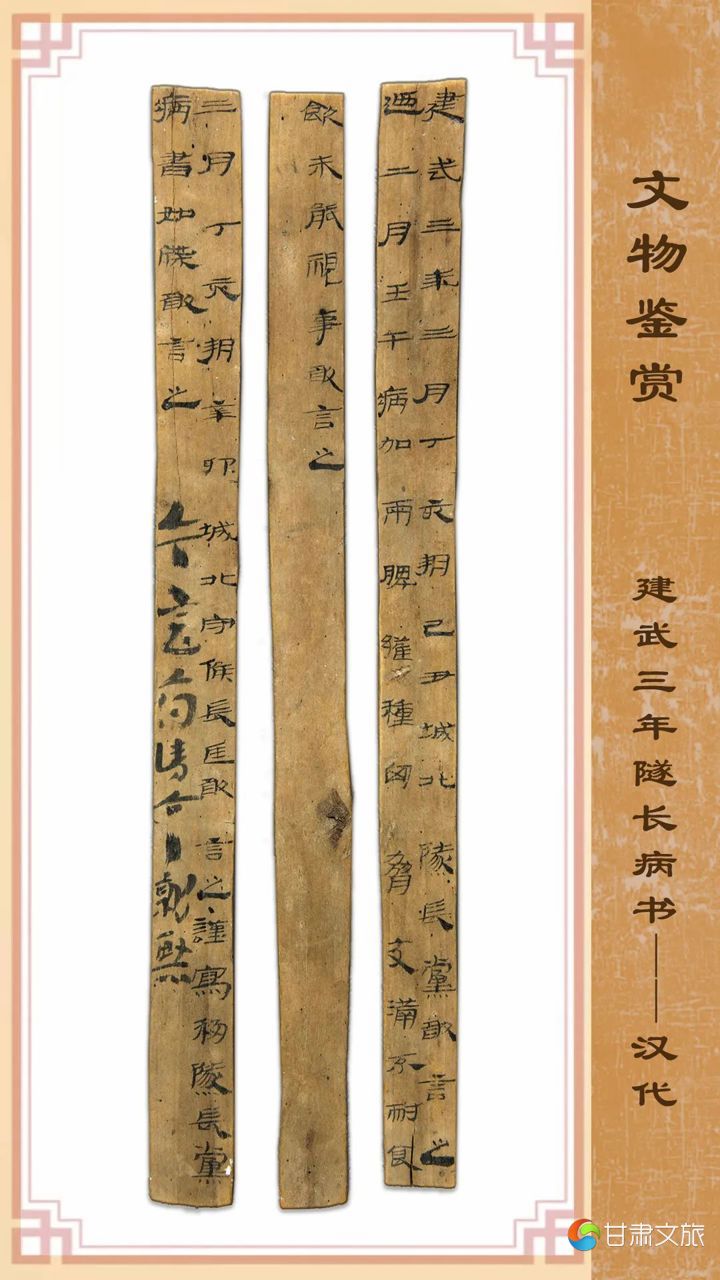 文物鉴赏
建武三年隧长病书——汉代
建武三年三月丁亥朔己丑城北隧長黨敢言之
迺二月壬午病加兩脾雍種匈脅丈滿不耐食
飲未能視事敢言之
三月丁亥朔辛卯城北守候長匡敢言之謹寫移隧長黨
病書如牒敢言之 今言府請令就醫
甘肃文旅